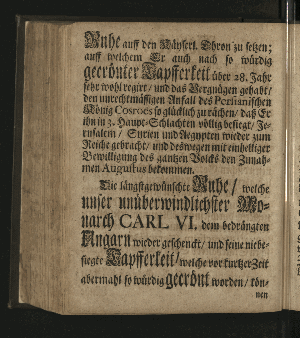 Ruhe auff den Käyserl. Thron zu setzen;
auff welchem Er auch nach so würdig
geerönter Tapfferkeit über 28. Jahr
sehr wohl regirt / und das Vergnügen gehabt /
den unrechtmässigen Anfall des Persianischen
König Cosroës so glücklich zu rächen / daß Er
ihn in 3. Haupt-Schlachten völlig besiegt / Je-
rusalem / Syrien und Aegypten wieder zum
Reiche gebracht / und deswegen mit einhelliger
Bewilligung des gantzen Volcks den Zunah-
men Augustus bekommen.
Die längstgewünschte Ruhe / welche
unser unüberwindlichster Mo-
narch CARL VI. dem bedrängten
Ungarn wieder geschenckt / und seine niebe-
siegte Tapfferkeit / welche vor kurtzer Zeit
abermahl so würdig geerönt worden / kön-
nen